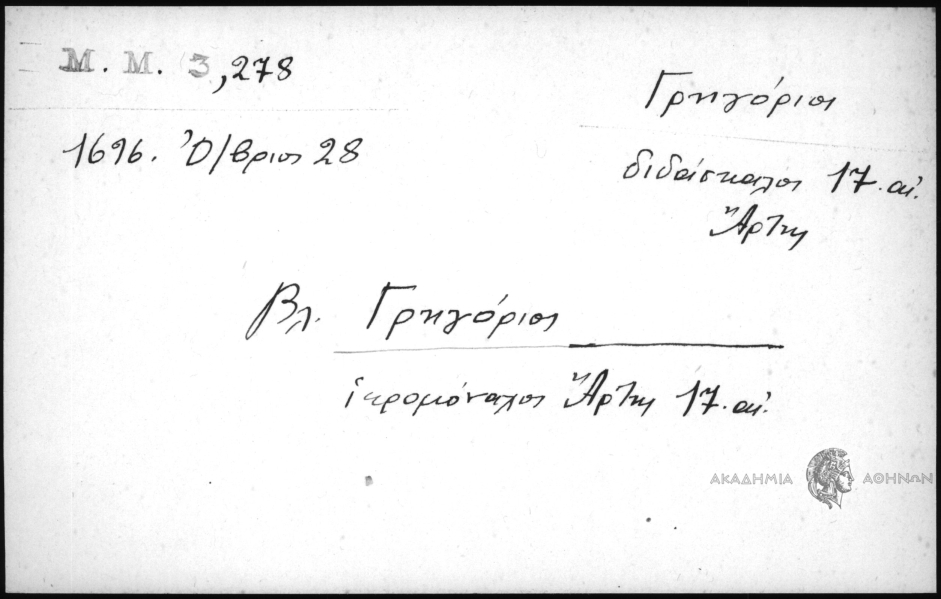 Μ. Μ. 3,278
Γρηγόριος
1696. Ὀ/βριος 28
διδάσκαλος 17. αἰ.
Ἄρτης
Βλ. Γρηγόριος
ἱερομόναχος Ἄρτης 17. αἰ.
ΑΚΑΔΗΜΙΑ ΑΘΗΝΩΝ